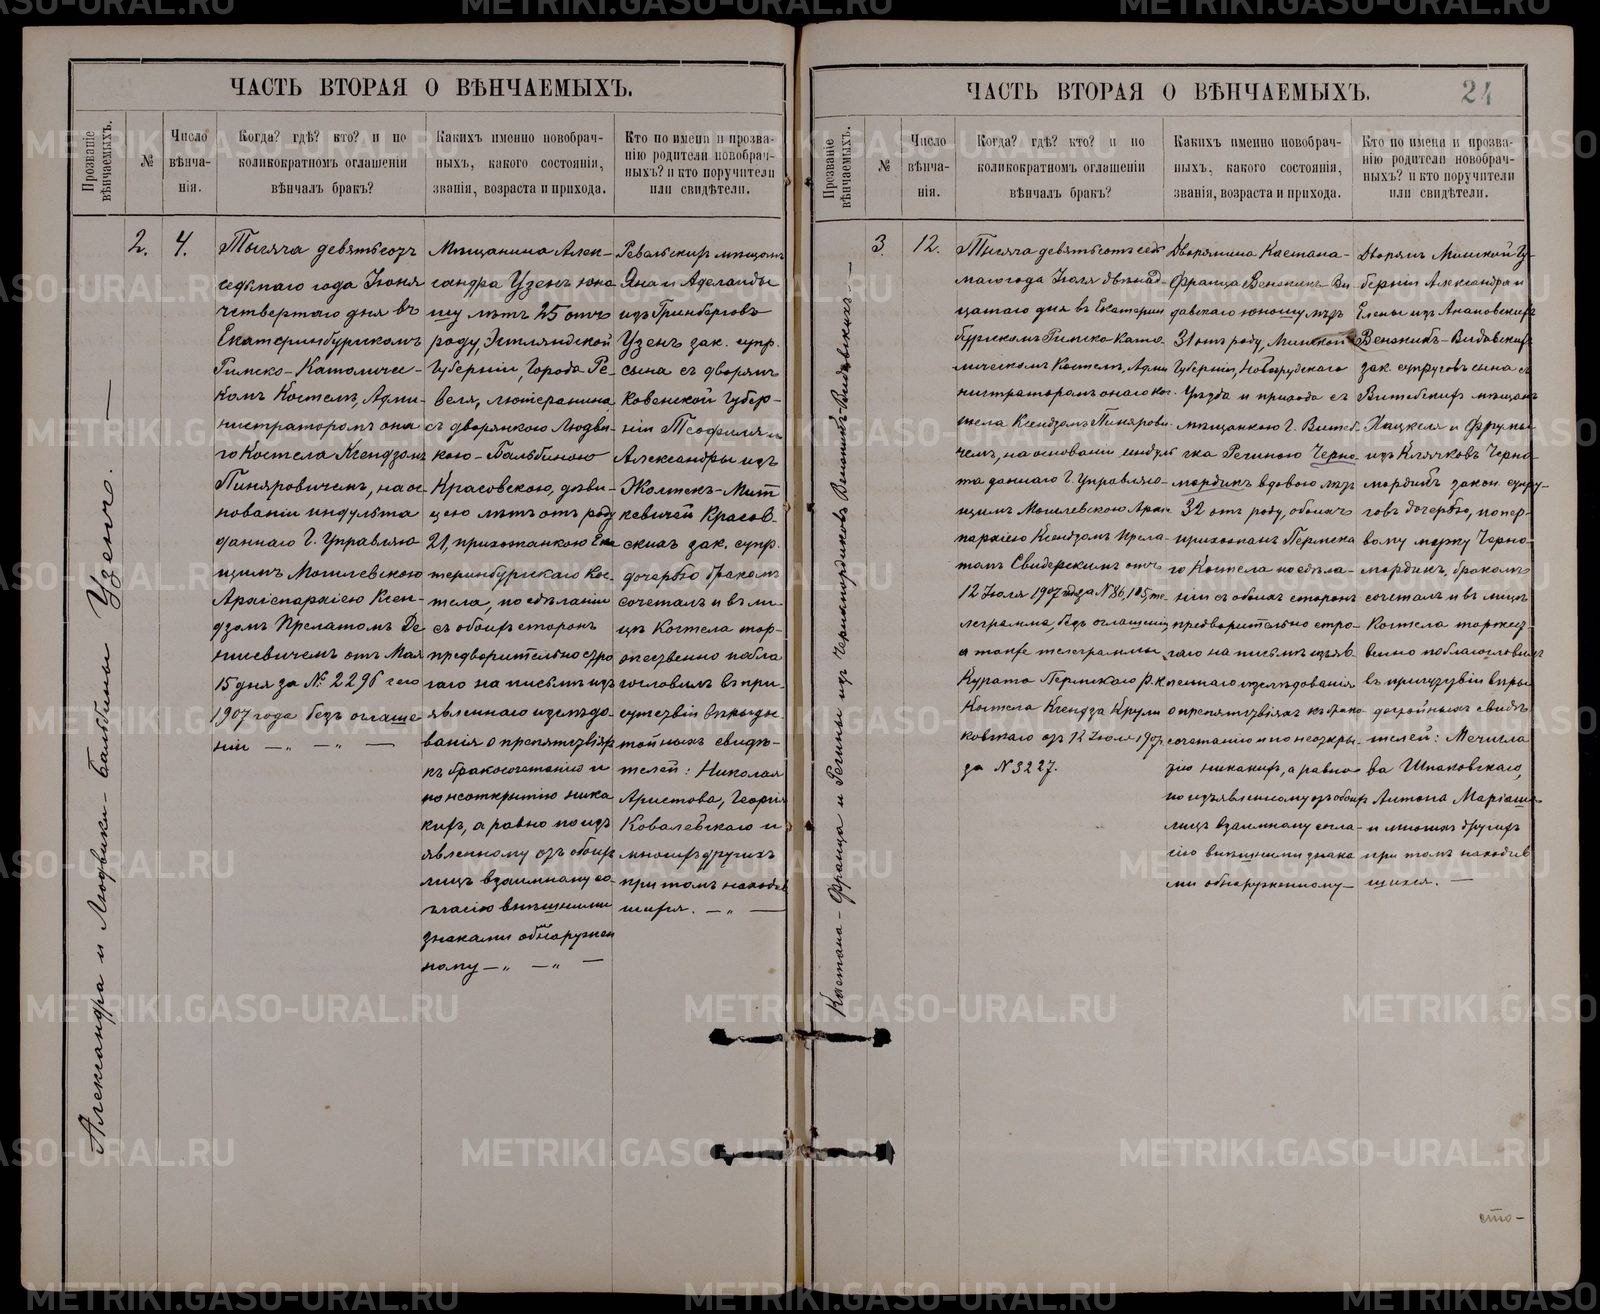 ЧАСТЬ ВТОРАЯ О ВѢНЧАЕМЫХЪ.
Прозваніе вѣнчаемыхъ.
№
Число вѣнча-
нія.
Когда? гдѣ? кто? и по
коликократномъ оглашеніи
вѣнчалъ бракъ?
Какихъ именно новобрач-
ныхъ, какого состоянія,
званія, возраста и прихода.
Кто по имени и прозва-
нію родители новобрач-
ныхъ? и кто поручители
или свидѣтели.
Александра и Людвики-Бальбины Узенъ. —
2.
4.
Тысяча девятьсотъ
седьмаго года Іюня
четвертаго дня въ
Екатеринбурскомъ
Римско-Католичес-
комъ Костелѣ, Адми-
нистраторомъ она
го Костела Ксендзомъ
Пиняровичемъ, на ос-
нованіи индульта
даннаго Г. Управляю
щимъ Могилевскою
Архіепархіею Ксен-
дзомъ Прелатомъ Де
нисевичемъ отъ Мая
15 дня за № 2296 сего
1907 года безъ оглаше
ній — „ — „ —
Мѣщанина Алек-
сандра Узенъ юно
шу лѣтъ 25 отъ
роду, Эстляндской
Губерніи, Города Ре-
веля, лютеранина
съ дворянкою Людви-
кою-Бальбиною
Красовскою, дѣви-
цею лѣтъ отъ роду
21, прихожанкою Ека
теринбургскаго Кос-
тела, по сдѣланіи
съ обоихъ сторонъ
предворительно стро
гаго на письмѣ изъ
явленнаго изслѣдо-
ванія о препятствіяхъ
къ бракосочетанію и
по неоткрытію ника
кихъ, а равно по изъ
явленному отъ обоихъ
лицъ взаимному со-
гласію внѣшними
знаками обнаружен
ному — „ — „ —
Ревельскихъ мѣщанъ
Яна и Аделаиды
изъ Гринберговъ
Узенъ зак. супр.
сына съ дворянъ
Ковенской Губер-
ніи Теофиля и
Александры изъ
Жолтек-Мит
кевичей Красов-
скихъ зак. супр.
дочерью бракомъ
сочеталъ и въ ли-
цѣ Костела тор-
жественно побла
гословилъ въ при-
сутствіи вѣрыдос-
тойныхъ свидѣ-
телей: Николая
Аристова, Георгія
Ковалевскаго и
многихъ другихъ
при томъ находив
шихся. — „ —
ЧАСТЬ ВТОРАЯ О ВѢНЧАЕМЫХЪ.
24
Прозваніе вѣнчаемыхъ.
№
Число вѣнча-
нія.
Когда? гдѣ? кто? и по
коликократномъ оглашеніи
вѣнчалъ бракъ?
Какихъ именно новобрач-
ныхъ, какого состоянія,
званія, возраста и прихода.
Кто по имени и прозва-
нію родители новобрач-
ныхъ? и кто поручители
или свидѣтели.
Каетана-Франца и Регины изъ Черномордиковъ Видавскихъ —
3
12.
Тысяча девятьсотъ седь
маго года Іюля двѣнад-
цатаго дня въ Екатерин
бурскомъ Римско Като
лическомъ Костелѣ, Адми
нистраторомъ онаго Кос-
тела Ксендзомъ Пинярови
чемъ, на основаніи индуль
та даннаго Г. Управляю-
щимъ Могилевскою Архі
епархіею Ксендзомъ Прела
томъ Свидерскимъ отъ
12 Іюля 1907 года за № 86,105, те-
леграмма, безъ оглашеній
а также телеграммы
Курата Пермскаго Р.К
Костела Ксендза Крули
ковскаго отъ 12 Іюля 1907
за № 3227.
Дворянина Каетана-
Франца Видавскаго юношу лѣтъ
31 отъ роду, Минской
Губерніи, Новогрудскаго
Уѣзда и прихода съ
мѣщанкою Г. Витеб
ска Региною Черно-
мордикъ вдовою лѣтъ
32 отъ роду, обоихъ
прихожанъ Пермска
го Костела по сдѣла-
ніи съ обоихъ сторонъ
предворительно стро-
гаго на письмѣ изъяв-
леннаго изслѣдованія
о препятствіяхъ къ брако-
сочетанію и по неоткры-
тію никакихъ, а равно
по изъявленному отъ обоихъ
лицъ взаимному согла-
сію внѣшними знака
ми обнаруженному —
Дворянъ Минской Гу-
берніи Александра и
Елены изъ Анановскихъ
Видавскихъ
зак. супруговъ сына съ
Витебскихъ мѣщанъ
Хацкеля и Фрумы
изъ Клячковъ Черно-
мордикъ закон. супру-
говъ дочерью, по пер-
вому мужу Черно-
мордикъ, бракомъ
сочеталъ и въ лицѣ
Костела торжест-
венно поблагословилъ
въ присутствіи вѣры
достойныхъ свидѣ
телей: Мечисла
ва Шпаковскаго,
Антона Маріаша
и многихъ другихъ
при томъ находив
шихся. —
сто-
METRIKI.GASO-URAL.RU